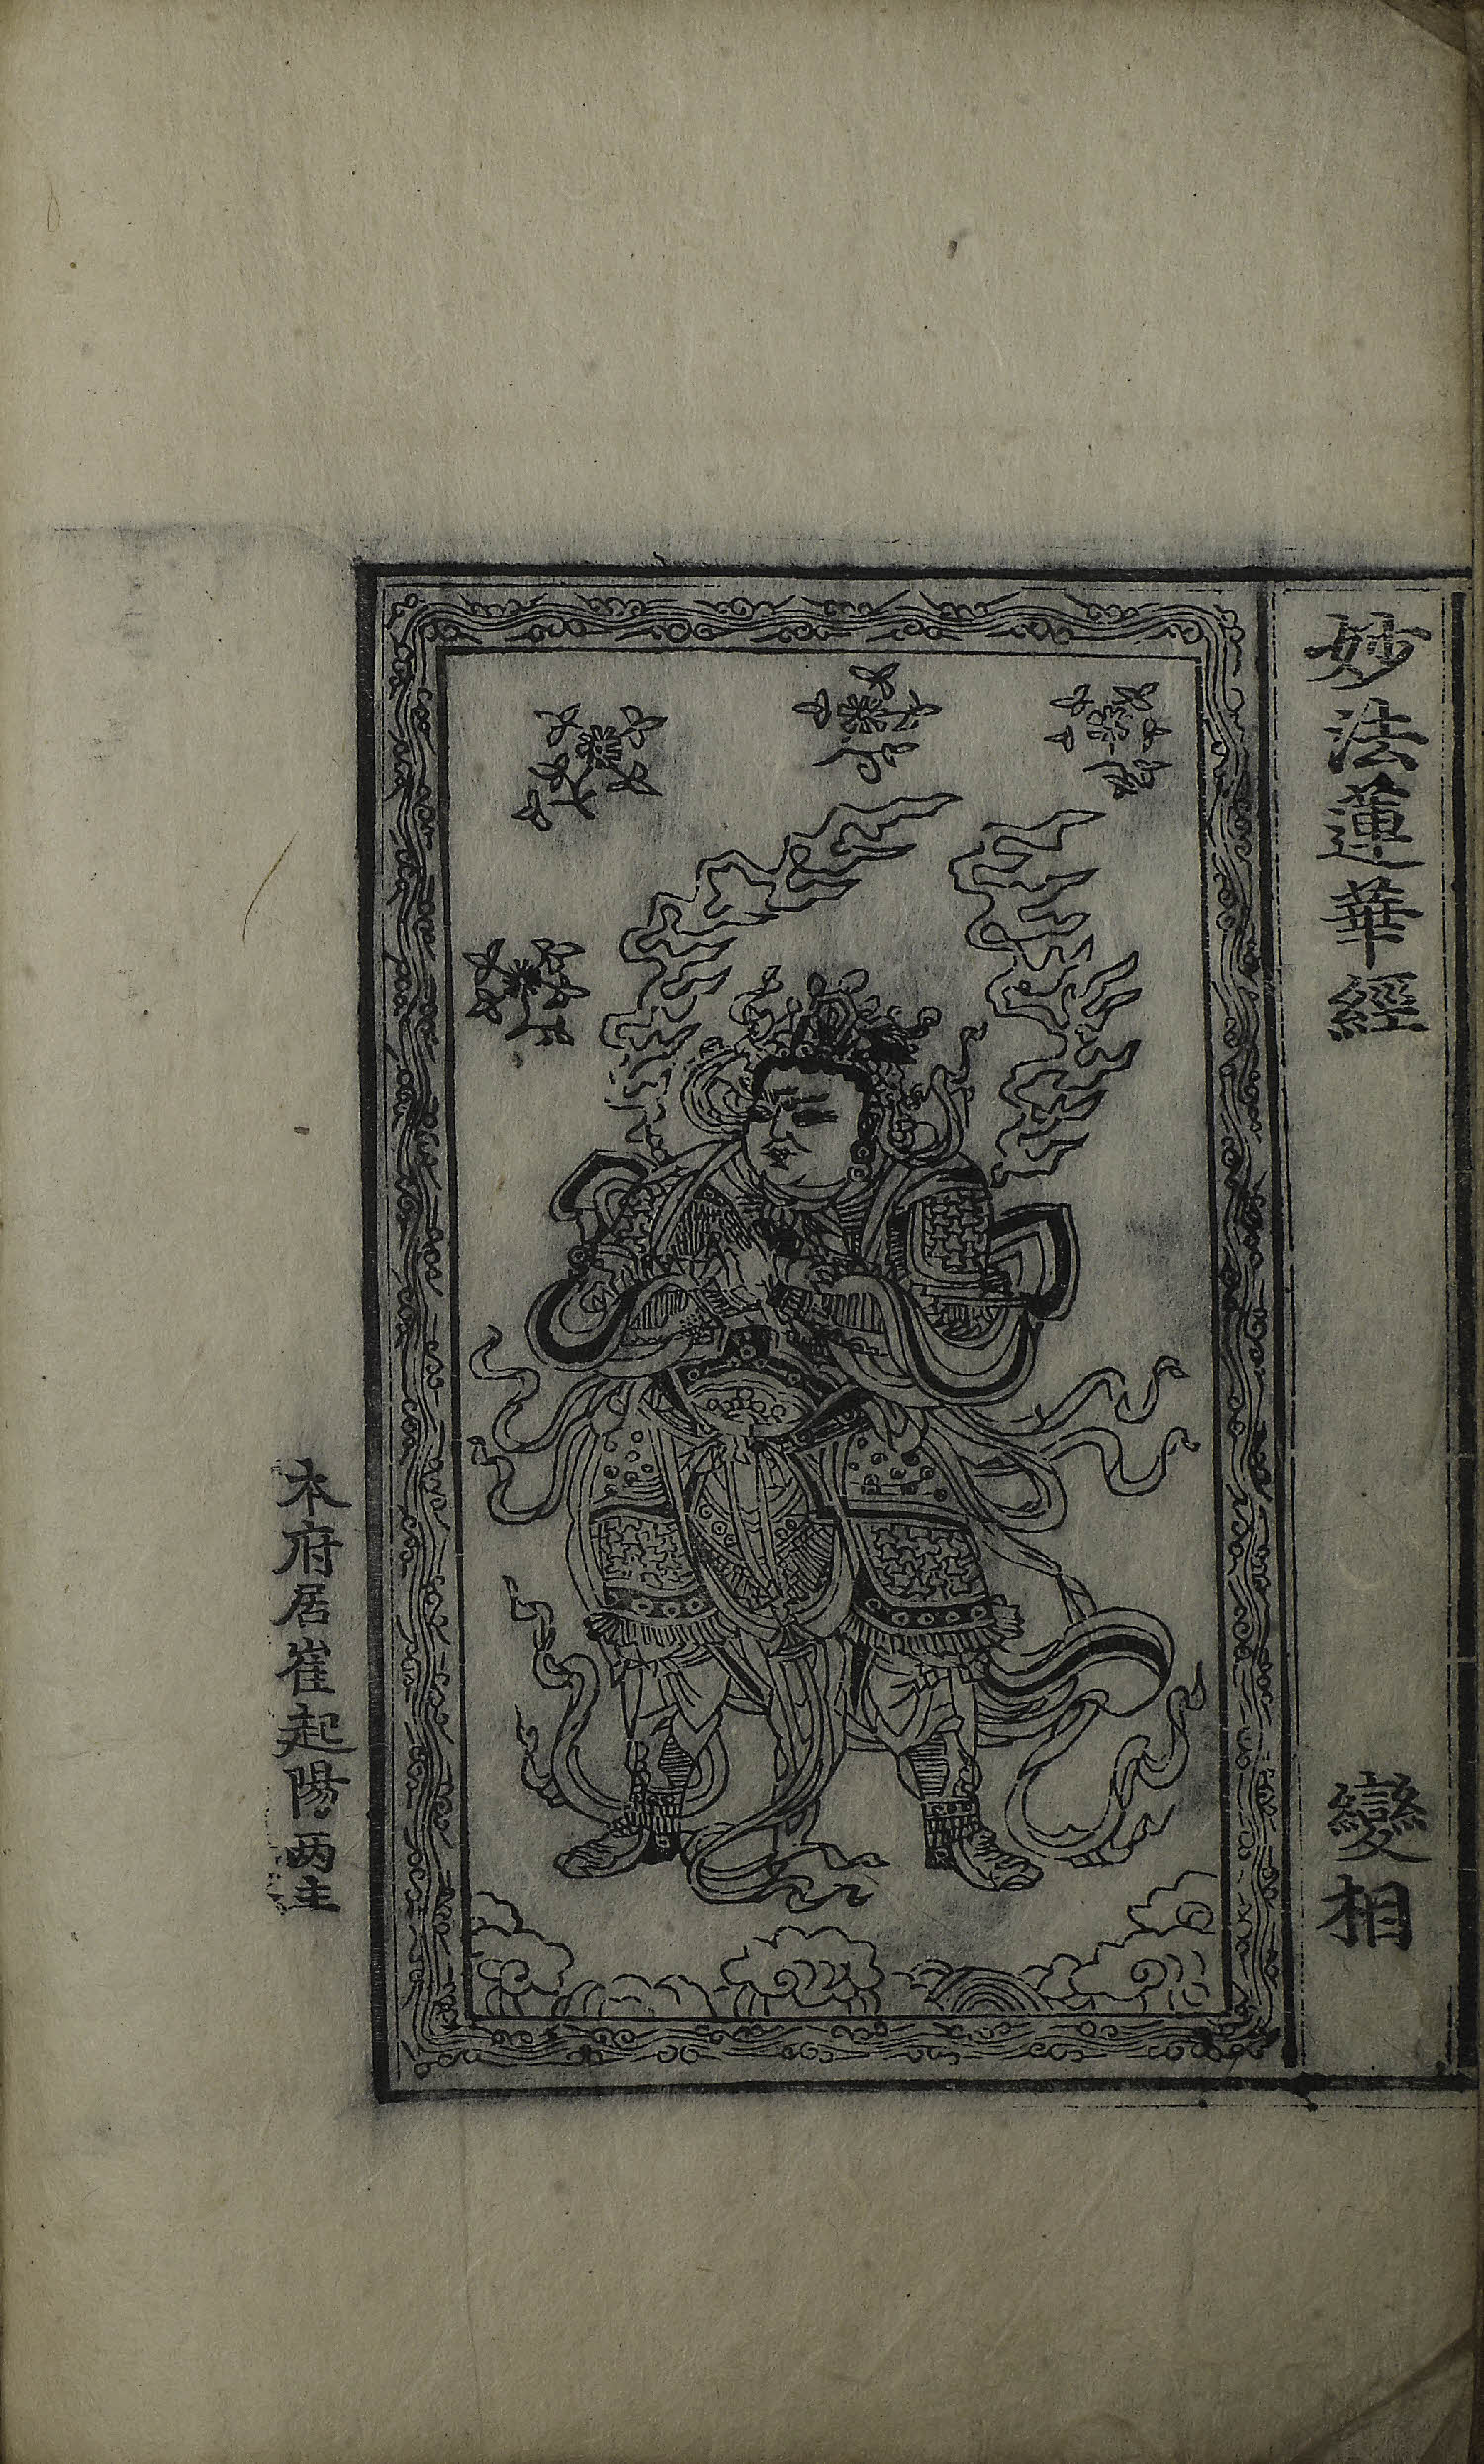 妙法蓮華經 變相
本府居崔起陽両主